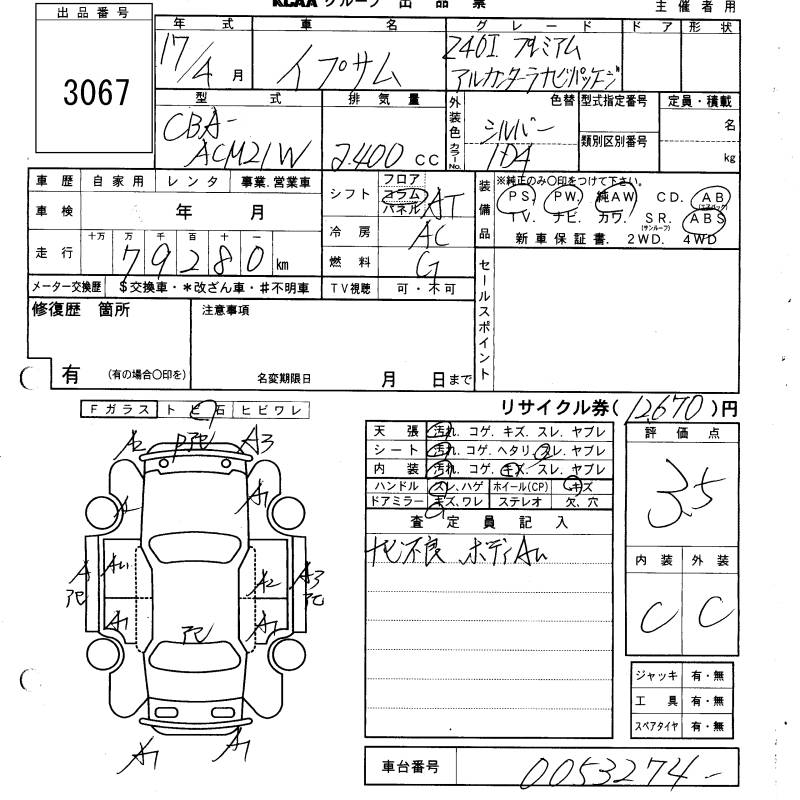 KCAA グループ 出 品 票
主 催 者 用
出品番号
3067
年 式
17/4 月
車 名
イプサム
グ レ ー ド
240I プレミアム
アルカンターラナビパッケージ
ド ア
形 状
型 式
CBA-
ACM21W
排 気 量
2400 cc
外装色
カラーNo.
色替
シルバー
1D4
型式指定番号
類別区別番号
定員・積載
名
kg
車 歴
自 家 用
レ ン タ
事業.営業車
車 検
年 月
走 行
十万 万 千 百 十 一
79280 km
メーター交換歴
$交換車・*改ざん車・#不明車
シフト
フロア
コラム
パネル
AT
冷 房
AC
燃 料
G
TV視聴
可・不可
装備品
※純正のみ〇印をつけて下さい。
PS. PW. 純AW. CD. AB
(エアバック)
TV. ナビ. カワ. S R. ABS
(サンルーフ)
新 車 保 証 書. 2WD. 4WD
セールスポイント
修復歴 箇所
有
(有の場合〇印を)
注意事項
名変期限日
月 日まで
リサイクル券( 12,670 )円
Fガラス ト ビ 石 ヒビワレ
天 張 汚れ. コゲ. キズ. スレ. ヤブレ
シート 汚れ. コゲ. ヘタリ. スレ. ヤブレ
内 装 汚れ. コゲ. キズ. スレ. ヤブレ
ハンドル スレ、ハゲ ホイール(CP) キズ
ドアミラー キズ、ワレ ステレオ 欠、穴
査 定 員 記 入
ナビ不良 ボディAu
評 価 点
3.5
内 装
外 装
C
C
A2
A3
A1
A
A
アピ
A1
A2
A3
アピ
A1
A1
アピ
A1
A1
ジャッキ 有・無
工 具 有・無
スペアタイヤ 有・無
車台番号
0053274-